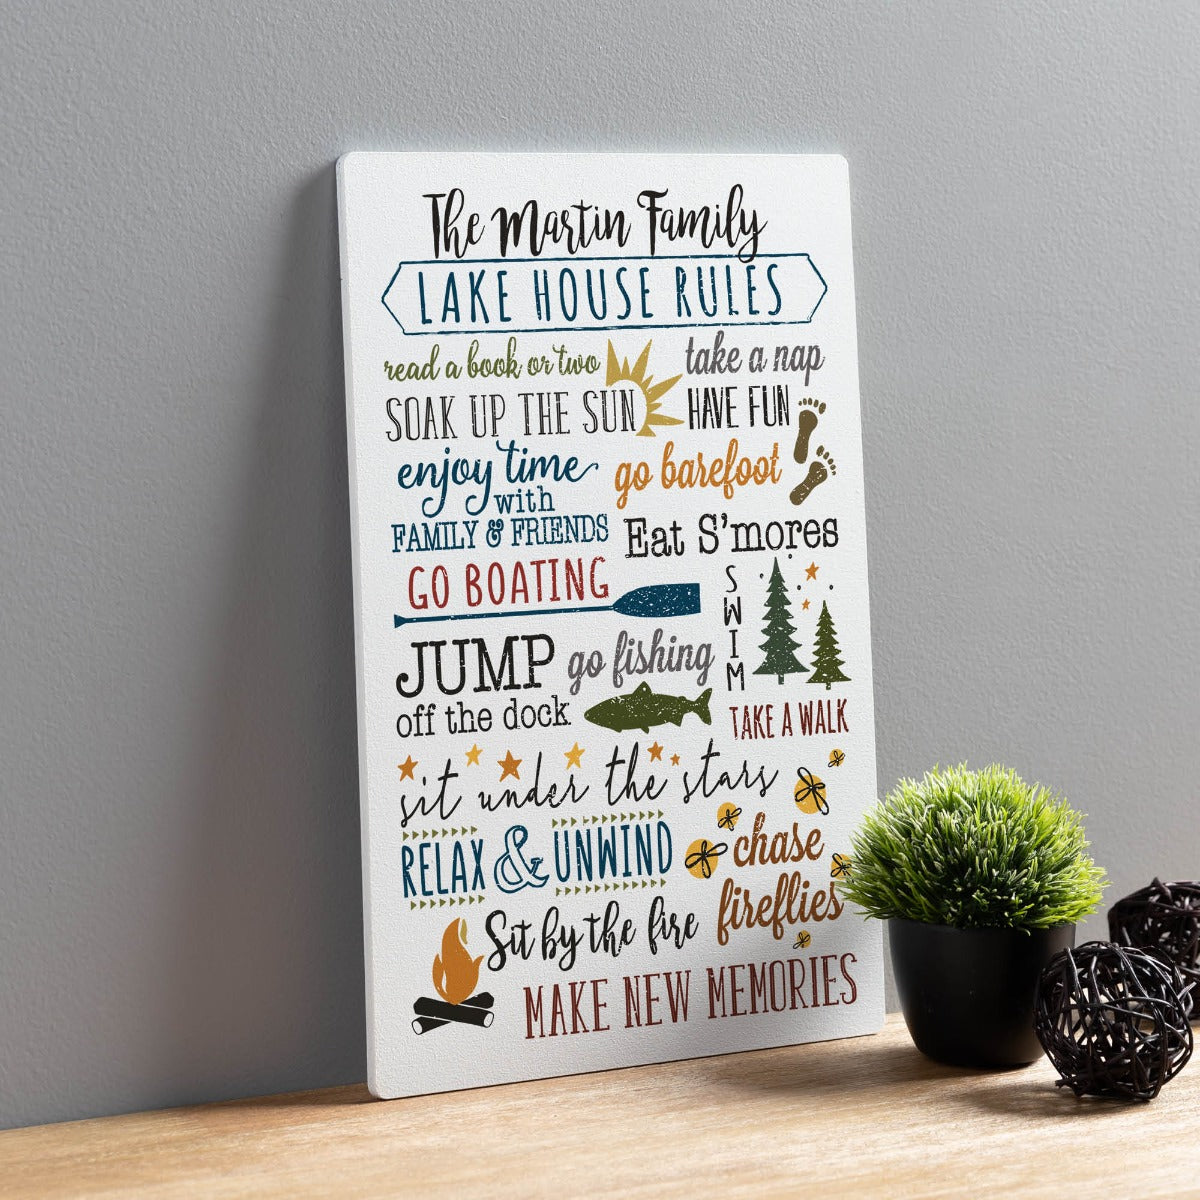 The Martin Family
LAKE HOUSE RULES
read a book or two
take a nap
SOAK UP THE SUN
HAVE FUN
enjoy time
with
FAMILY & FRIENDS
go barefoot
Eat S'mores
GO BOATING
SWIM
JUMP
off the dock
go fishing
TAKE A WALK
sit under the stars
RELAX & UNWIND
chase
fireflies
Sit by the fire
MAKE NEW MEMORIES